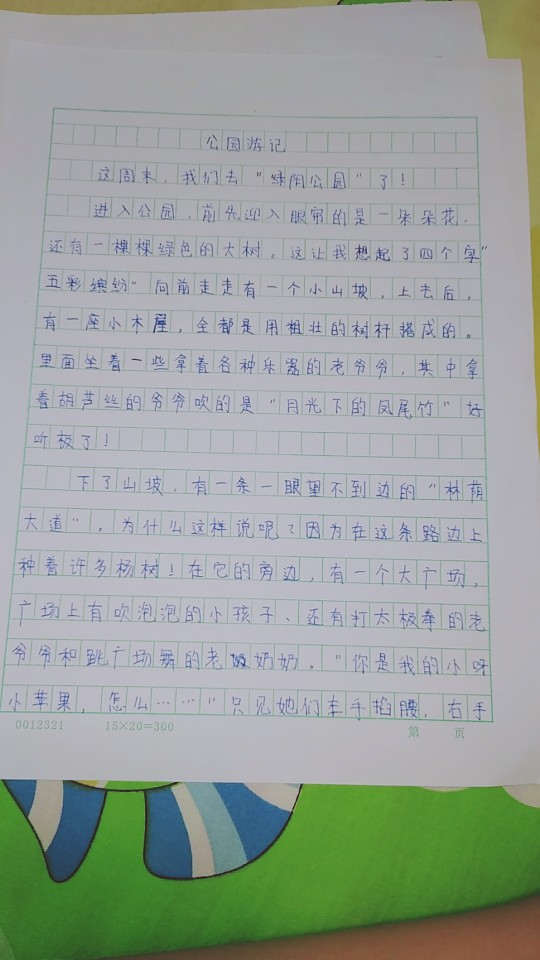 公园游记
这周末，我们去“绿阴公园”了！
进入公园，前先迎入眼帘的是一朵朵花，
还有一棵棵绿色的大树。这让我想起了四个字“
五彩缤纷”向前走走有一个小山坡，上去后，
有一座小木屋，全都是用粗壮的树杆搭成的。
里面坐着一些拿着各种乐器的老爷爷，其中拿
着胡芦丝的爷爷吹的是“月光下的凤尾竹”好
听极了！
下了山坡，有一条一眼望不到边的“林荫
大道”。为什么这样说呢？因为在这条路边上
种着许多杨树！在它的旁边，有一个大广场，
广场上有吹泡泡的小孩子、还有打太极拳的老
爷爷和跳广场舞的老奶奶。“你是我的小呀
小苹果，怎么……”只见她们左手掐腰，右手
0012321 15×20=300 第 页